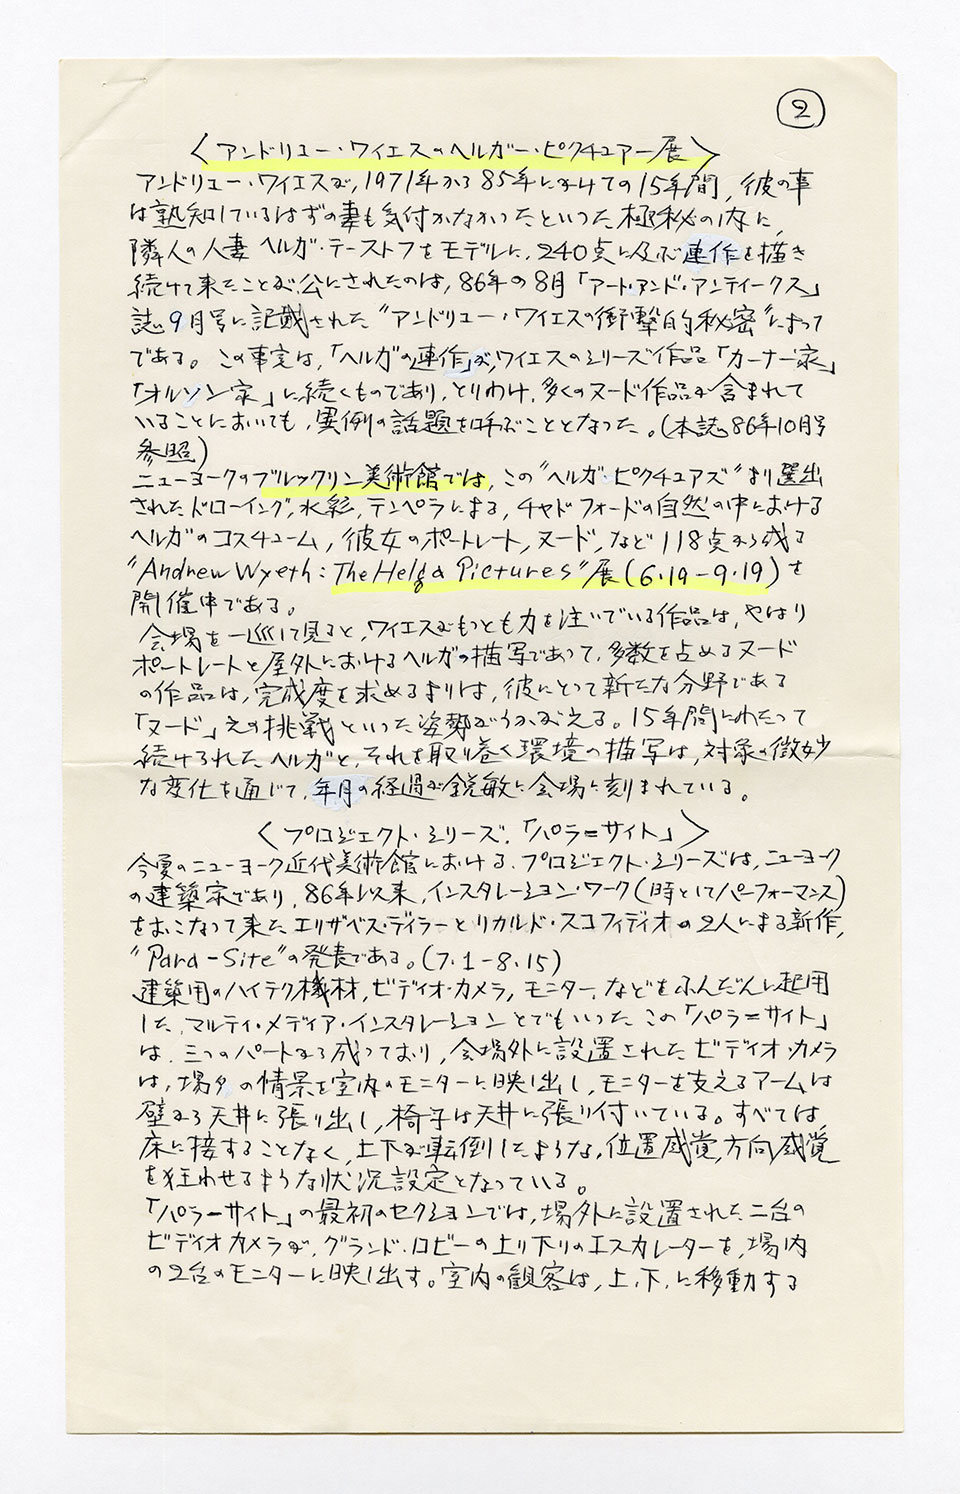 2
〈アンドリュー・ワイエスのヘルガー・ピクチュアー展〉
アンドリュー・ワイエスが、1971年から85年にかけての15年間、彼の事
は熟知しているはずの妻も気付かなかったといった極秘の内に、
隣人の人妻ヘルガ・テーストフをモデルに、240点に及ぶ連作を描き
続けて来たことが公にされたのは、86年の8月「アート・アンド・アンティークス」
誌9月号に記載された"アンドリュー・ワイエスの衝撃的秘密"によって
である。この事実は、「ヘルガの連作」が、ワイエスのシリーズ作品「カーナー家」
「オルソン家」に続くものであり、とりわけ、多くのヌード作品が含まれて
いることにおいても、異例の話題を呼ぶこととなった。(本誌86年10月号
参照)
ニューヨークのブルックリン美術館では、この"ヘルガ・ピクチュアズ"より選出
されたドローイング、水彩、テンペラによる、チャドフォードの自然の中における
ヘルガのコスチューム、彼女のポートレート、ヌード、など118点から成る
"Andrew Wyeth: The Helga Pictures"展(6.19-9.19)を
開催中である。
会場を一巡して見ると、ワイエスがもっとも力を注いでいる作品は、やはり
ポートレートと屋外におけるヘルガの描写であって、多数を占めるヌード
の作品は、完成度を求めるよりは、彼にとって新たな分野である
「ヌード」えの挑戦といった姿勢がうかがえる。15年間にわたって
続けられたヘルガと、それを取り巻く環境の描写は、対象の微妙
な変化を通じて、年月の経過が鋭敏に会場に刻まれている。
〈プロジェクト・シリーズ.「パラ=サイト」〉
今夏のニューヨーク近代美術館における、プロジェクト・シリーズは、ニューヨーク
の建築家であり、86年以来、インスタレーション・ワーク(時としてパーフォーマンス)
をおこなって来たエリザベス・ディラーとリカルド・スコフィディオの2人による新作、
"Para-Site"の発表である。(7.1-8.15)
建築用のハイテク機材、ビディオ・カメラ、モニター、などをふんだんに起用
した、マルティ・メディア・インスタレーションとでもいったこの「パラ=サイト」
は、三つのパートから成っており、会場外に設置されたビディオ・カメラ
は、場外の情景を室内のモニターに映し出し、モニターを支えるアームは
壁から天井に張り出し、椅子は天井に張り付いている。すべては、
床に接することなく、上下が転倒したような、位置感覚、方向感覚
を狂わせるような状況設定となっている。
「パラーサイト」の最初のセクションでは、場外に設置された二台の
ビディオカメラが、グランド・ロビーの上り下りのエスカレーターを、場内
の2台のモニターに映し出す。室内の観客は、上、下、に移動する